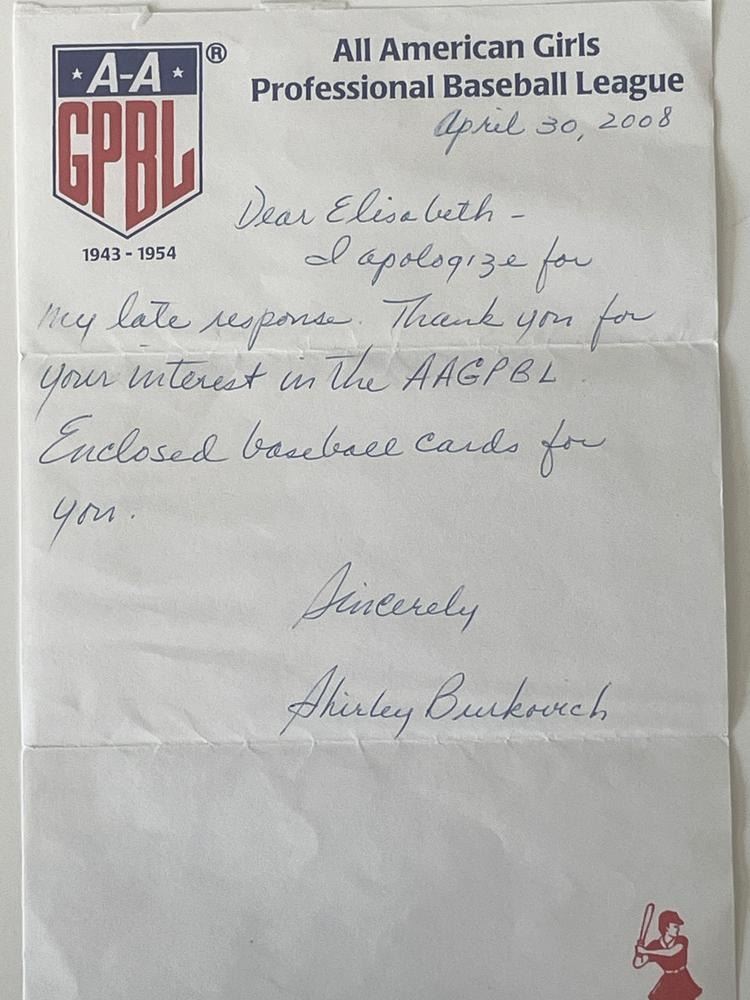 A-A
GPBL
®
1943 - 1954
All American Girls
Professional Baseball League
April 30, 2008
Dear Elisabeth -
I apologize for
my late response. Thank you for
your interest in the AAGPBL.
Enclosed baseball cards for
you.
Sincerely
Shirley Burkovich